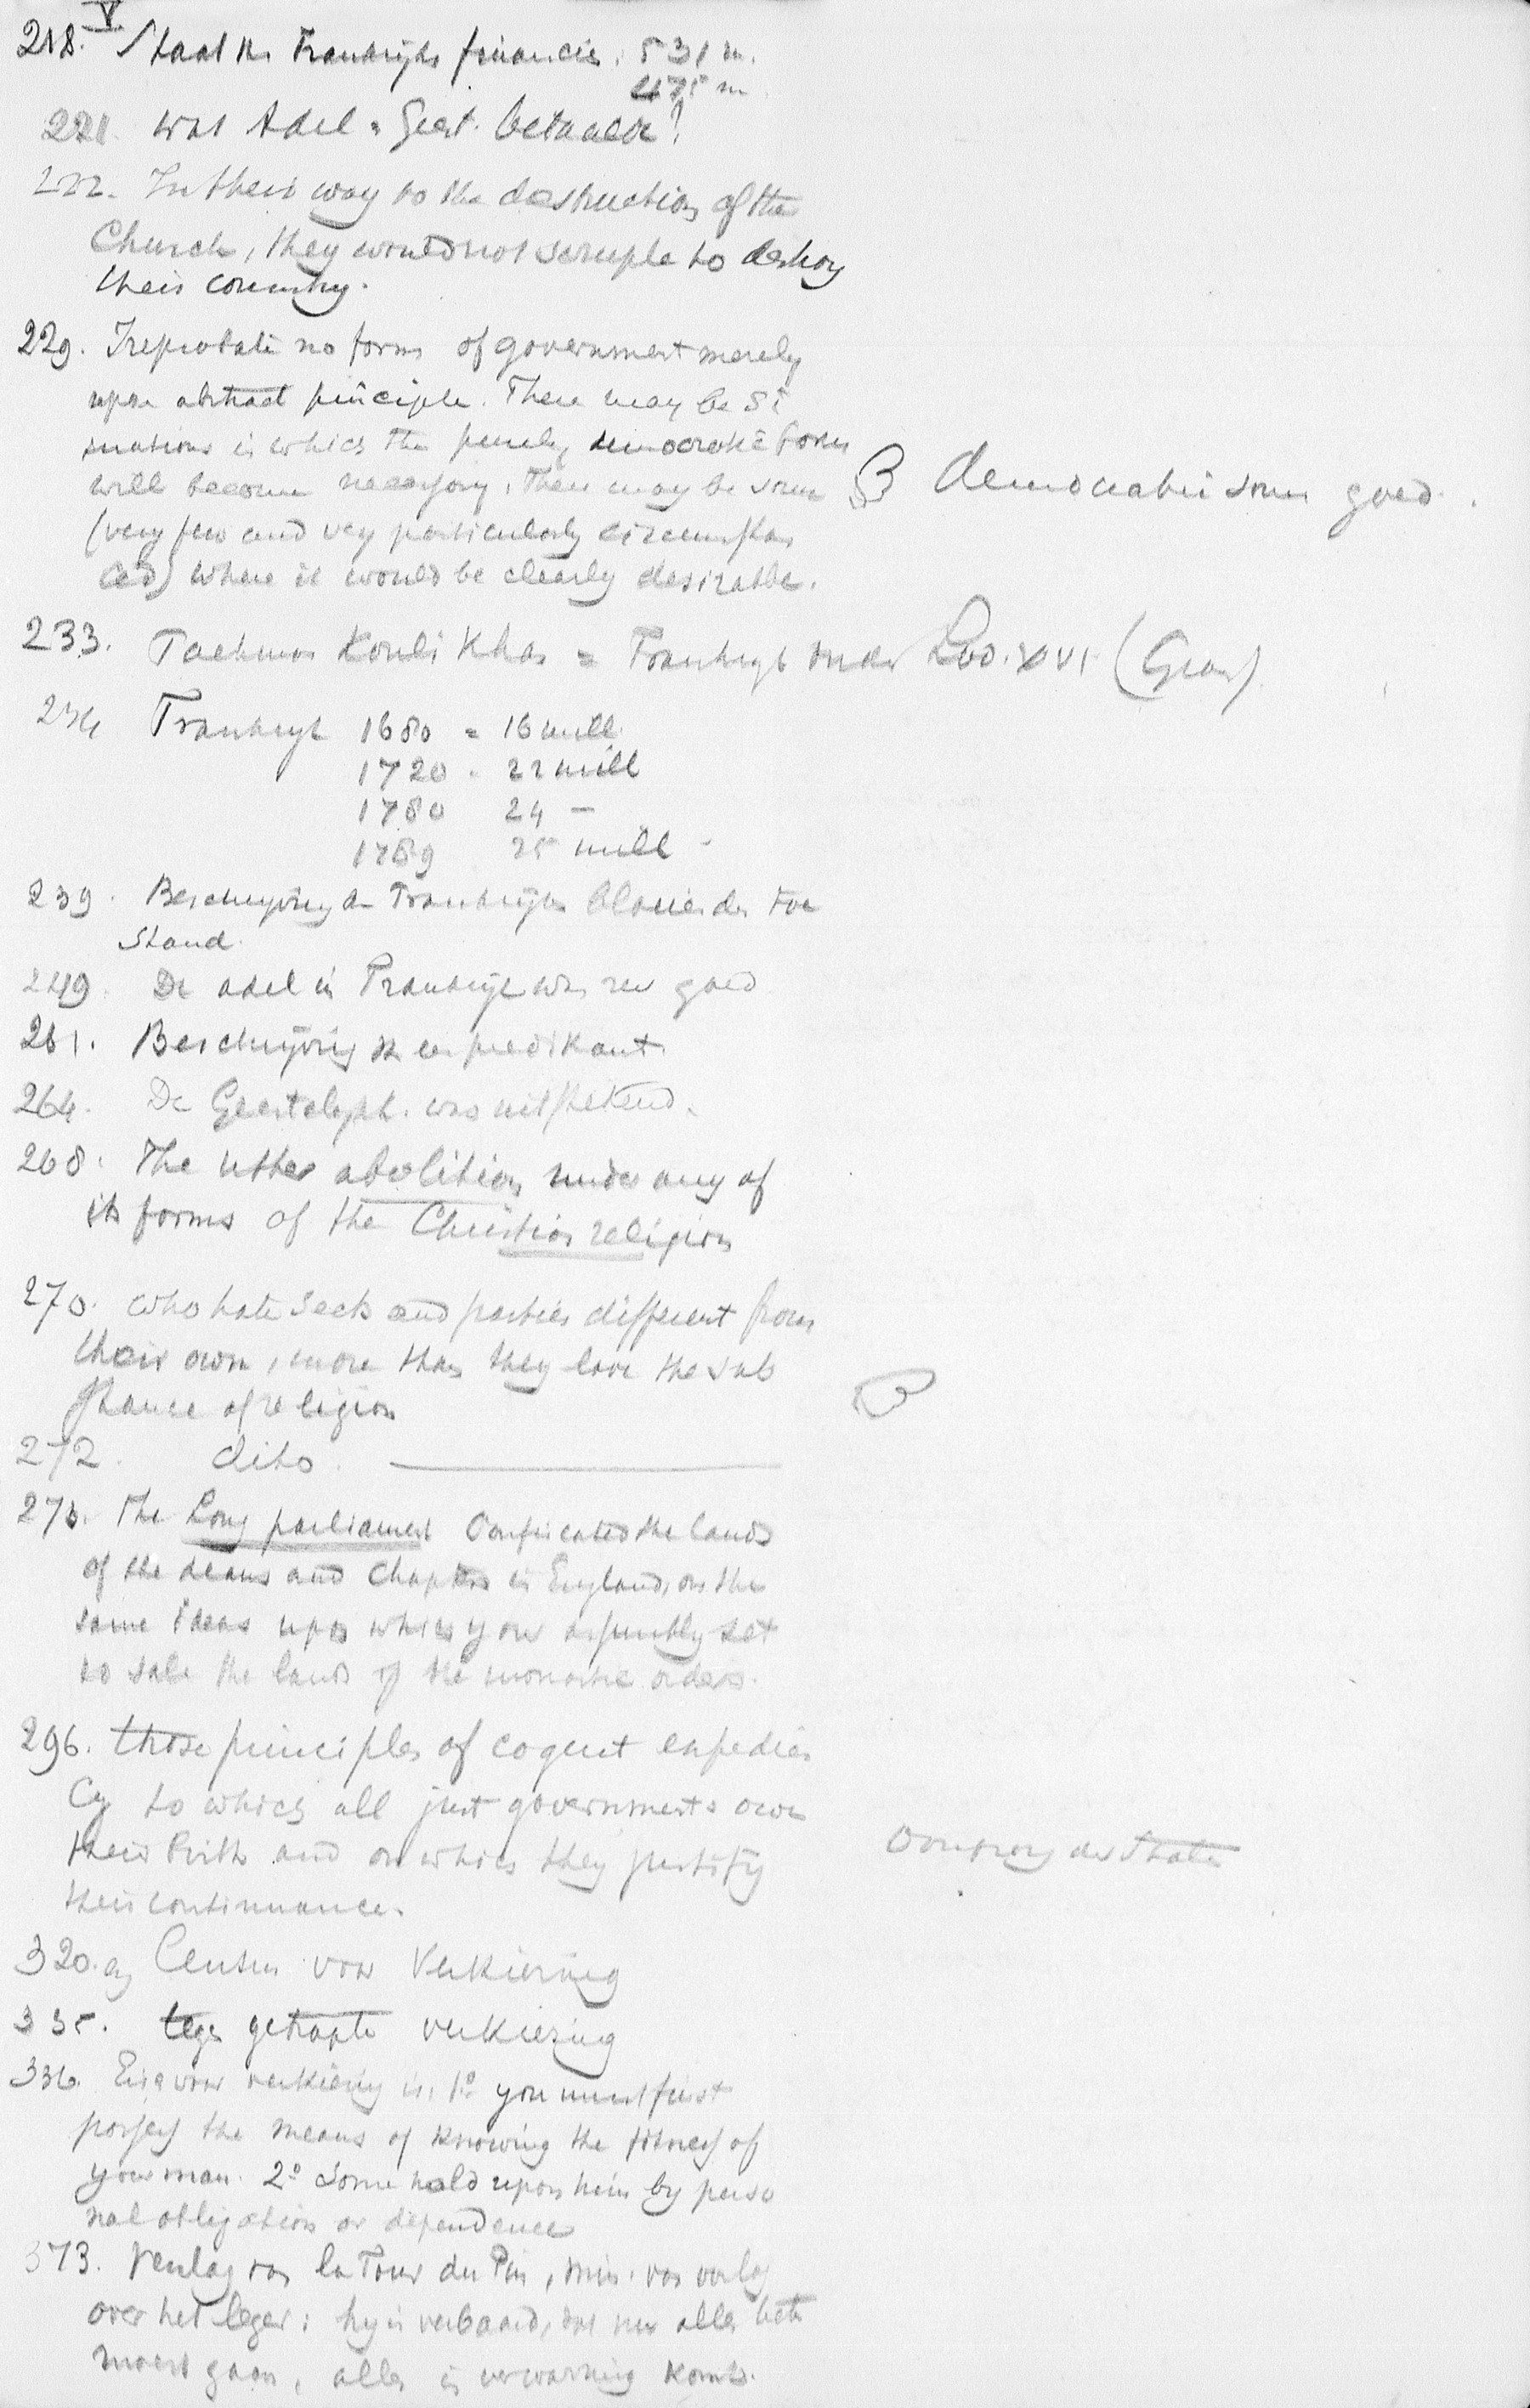 V
218. Staat der Frankrijks financiën. 531 m.
475 m
221. Wat Adel + Geest. betaalde?
222. In their way to the destruction of the
Church, they would not scruple to destroy
their country.
229. I reprobate no form of government merely
upon abstract principle. There may be si
tuations in which the purely democratic form
will become necessary. There may be some
democratie soms goed.
(very few and very particularly circumstan
ced) where it would be clearly desirable.
233. Taehmas Kouli Khan = Frankrijk onder Lod. XVI
234 Frankrijk 1680 = 16 mill.
1720 - 22 mill
1780 24 —
1789 25 mill -
239. Beschrijving van Frankrijks bloeienden toe
stand.
249. De adel in Frankrijk was zeer goed
261. Beschrijving v. een predikant.
264. De Geestelijkh. was uitstekend.
268. The utter abolition under any of
its forms of the Christian religion
270. who hate sects and parties different from
their own, more than they love the sub
stance of religion
272. dito
273. The Long parliament confiscated the lands
of the deans and chapters in England, on the
same ideas upon which your assembly set
to sale the lands of the monastic orders.
296. those principles of cogent expedien
cy to which all just governments owe
their birth and on which they justify
Oorsprong der Staten
their continuance.
320. Census voor Verkiezing
335. tegen getrapte verkiezing
336. Eisch voor verkiezing is: 1º you must first
possess the means of knowing the fitness of
your man. 2º Some hold upon him by perso
nal obligation or dependence
373. Verslag van la Tour du Pin, min. van oorlog
over het leger: hij is verbaasd, dat nu alles beter
moest gaan, alles in verwarring komt.